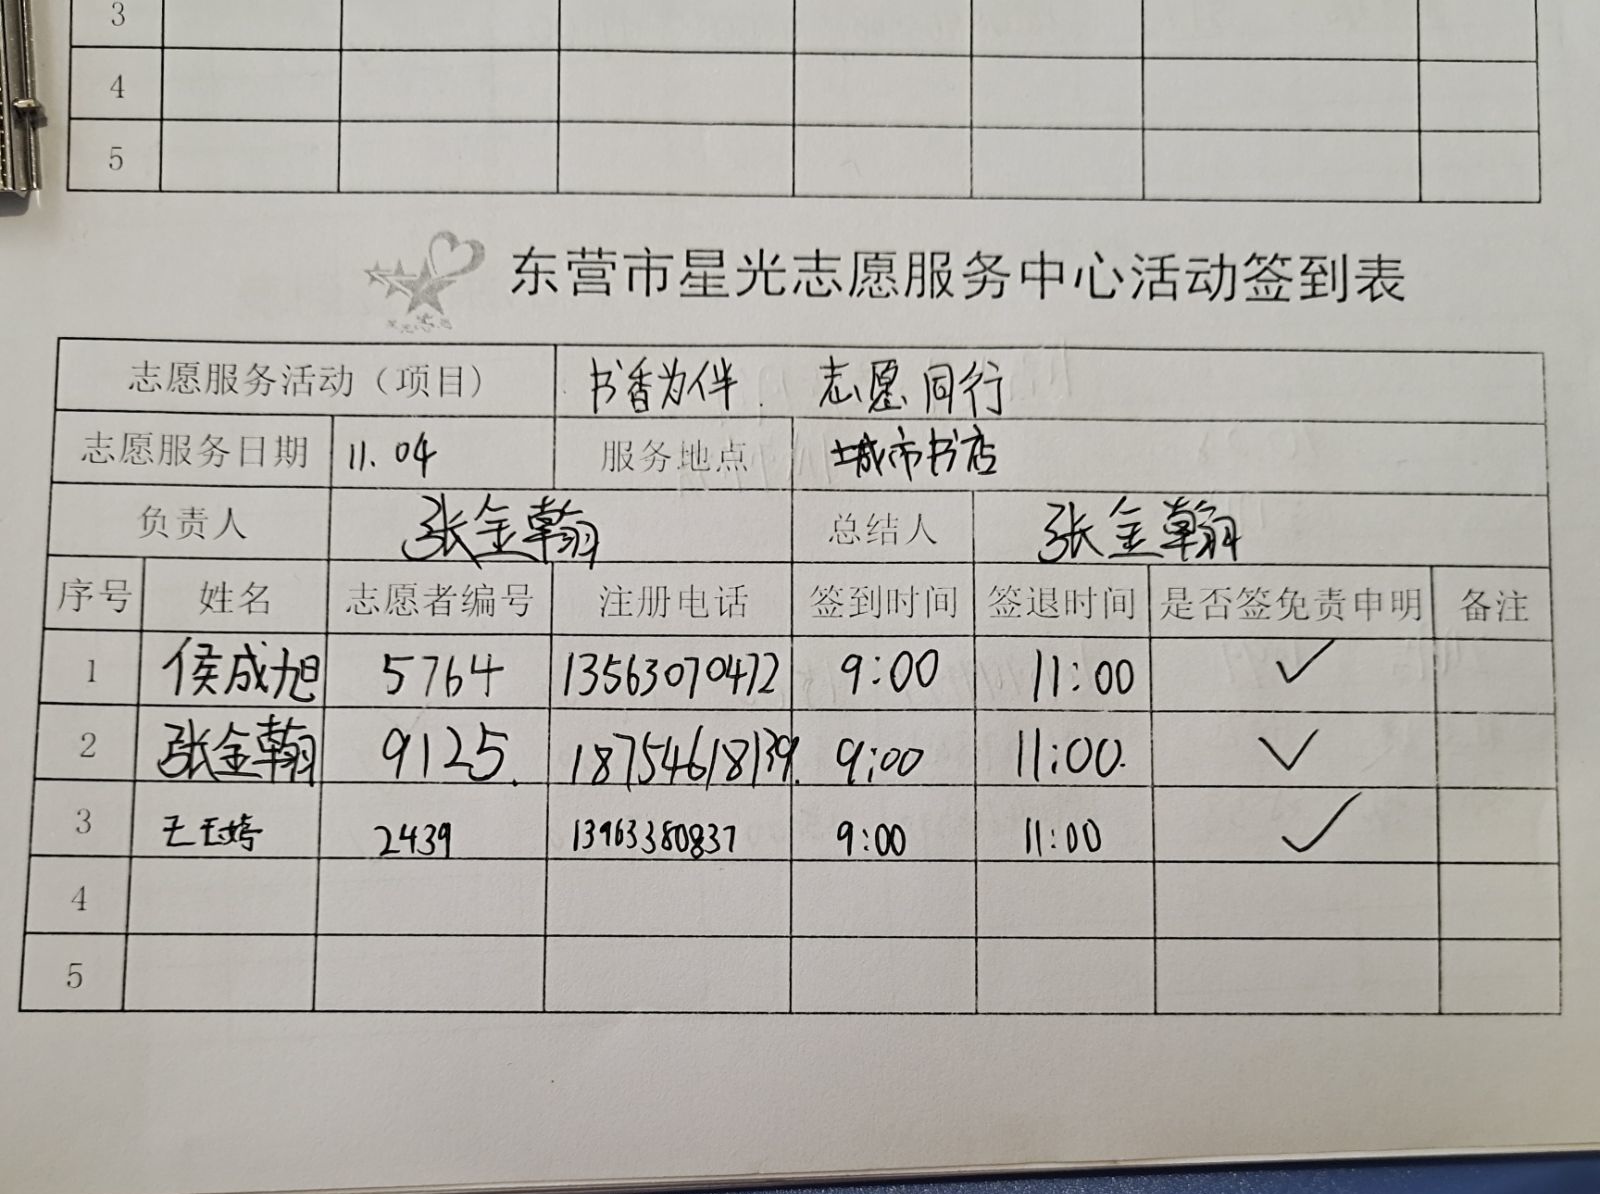 3
4
5
东营市星光志愿服务中心活动签到表
志愿服务活动（项目） 书香为伴 志愿同行
志愿服务日期 11.04 服务地点 城市书店
负责人 张金翰 总结人 张金翰
序号 姓名 志愿者编号 注册电话 签到时间 签退时间 是否签免责申明 备注
1 侯成旭 5764 13563070472 9:00 11:00 ✓
2 张金翰 9125. 18754618139. 9:00 11:00. ✓
3 王玉婷 2439 13963380837 9:00 11:00 ✓
4
5